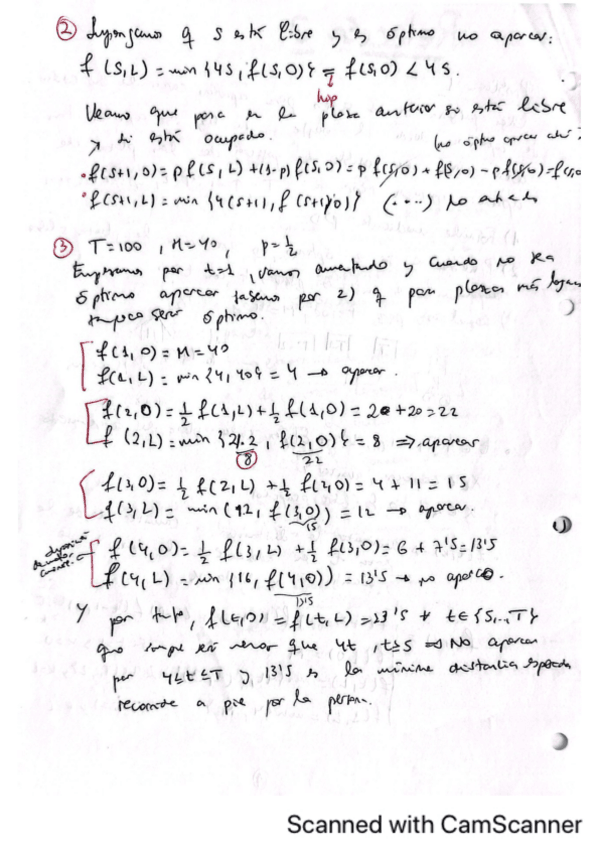 ② Supongamos q s está libre y es óptimo no aparcar:
f (S,L) = min {4S, f(S,0)} = f(S,0) < 4S.
hip
Veamos que para en la plaza anterior si está libre
y si está ocupado.
(no óptimo aparcar ahí)
• f(S+1,0) = p f(S,L) + (1-p) f(S,0) = p f(S,0) + f(S,0) - p f(S,0) = f(S,0)
• f(S+1,L) = min {4(S+1), f(S+1,0)} (....) no
③ T=100, M=40, p=1/2
Empezamos por t=1, vamos aumentando y cuando no sea
óptimo aparcar sabemos por 2) q para plazas más lejanas
tampoco será óptimo.
f(1,0) = M = 40
f(1,L) = min {4, 40} = 4 → aparcar.
f(2,0) = 1/2 f(1,L) + 1/2 f(1,0) = 2 + 20 = 22
f (2,L) = min {4.2, f(2,0)} = 8 ⇒ aparcar
8 22
f(3,0) = 1/2 f(2,L) + 1/2 f(2,0) = 4 + 11 = 15
f(3,L) = min (12, f(3,0)) = 12 → aparca.
15
f (4,0) = 1/2 f(3,L) + 1/2 f(3,0) = 6 + 7'5 = 13'5
f (4,L) = min {16, f(4,0)} = 13'5 → no aparco.
13'5
Y por tanto, f(t,0) = f(t,L) = 13'5 ∀ t∈{5,..,T}
que siempre es menor que 4t, t≥5 ⇒ No aparcar
para 4≤t≤T y 13'5 es la mínima distancia esperada
recorrida a pie por la persona.
Scanned with CamScanner